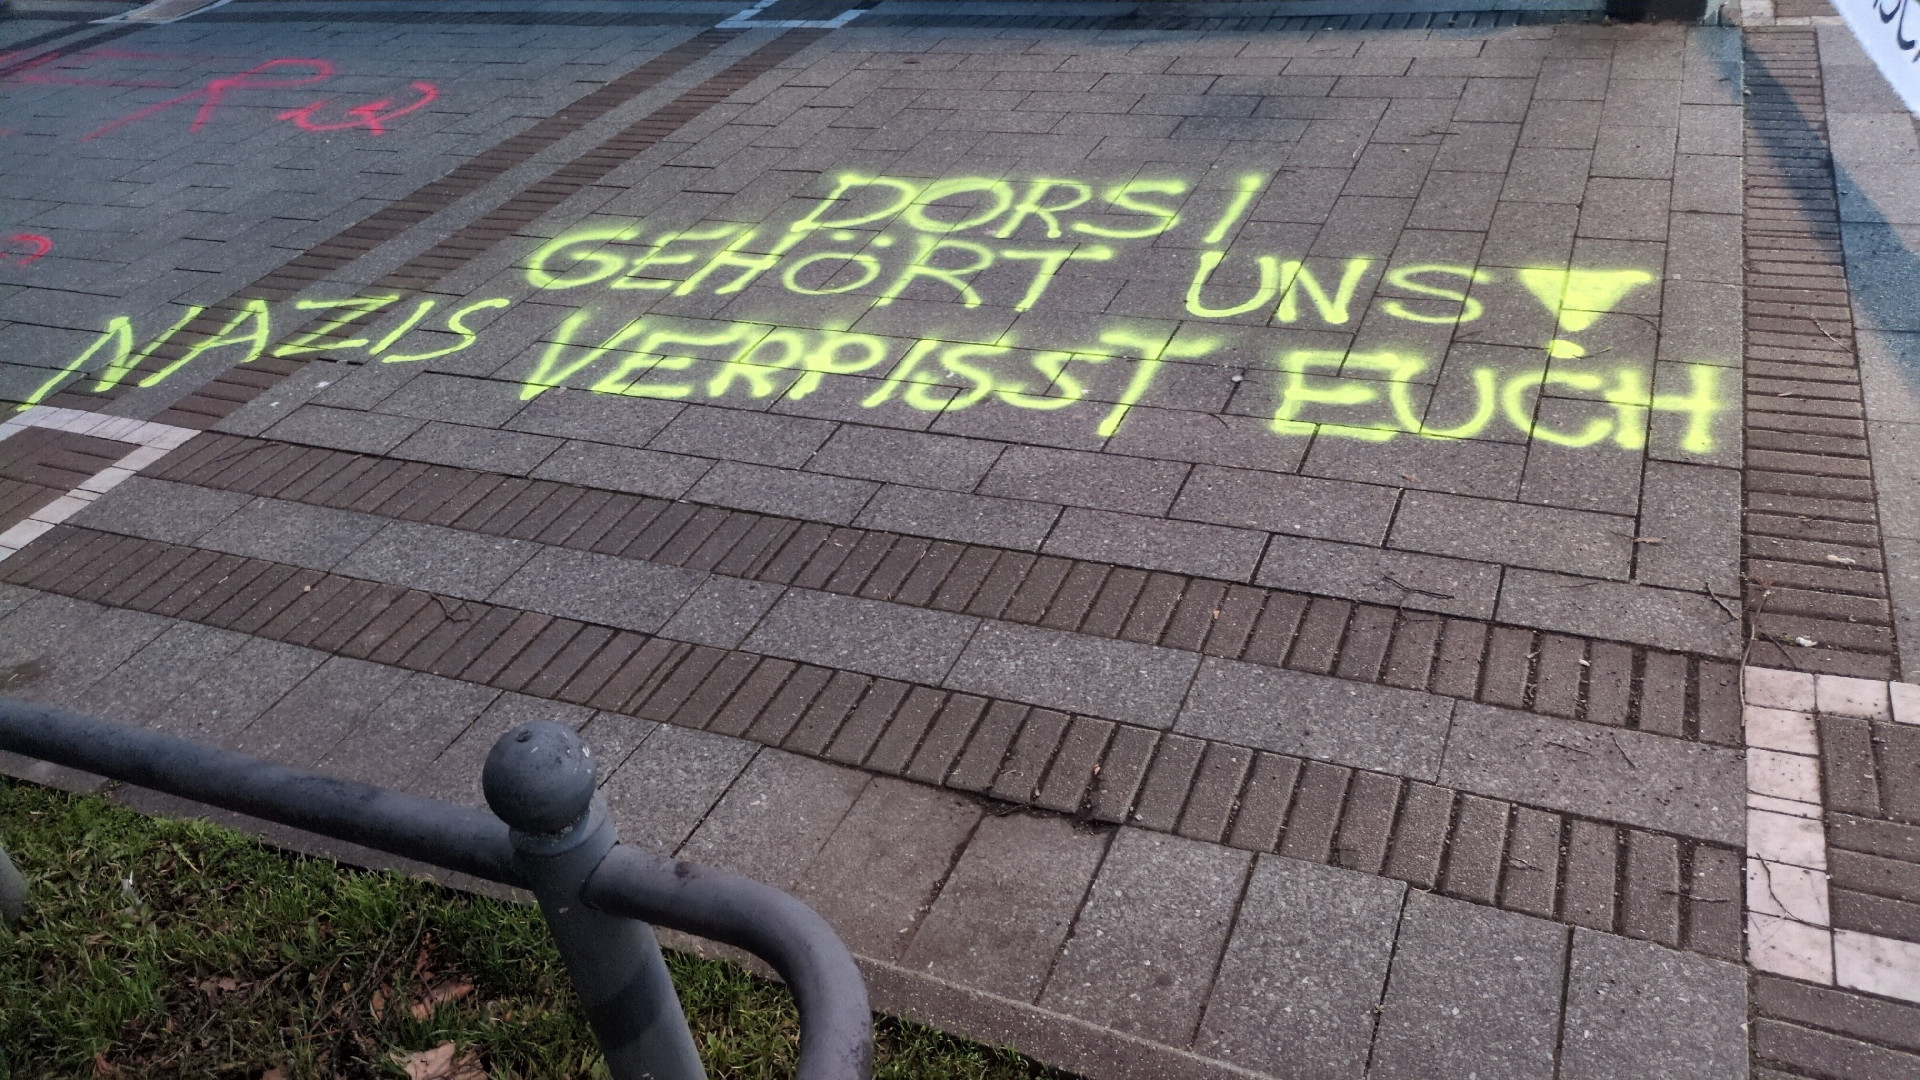 DORSI
GEHÖRT UNS!
NAZIS VERPISST EUCH